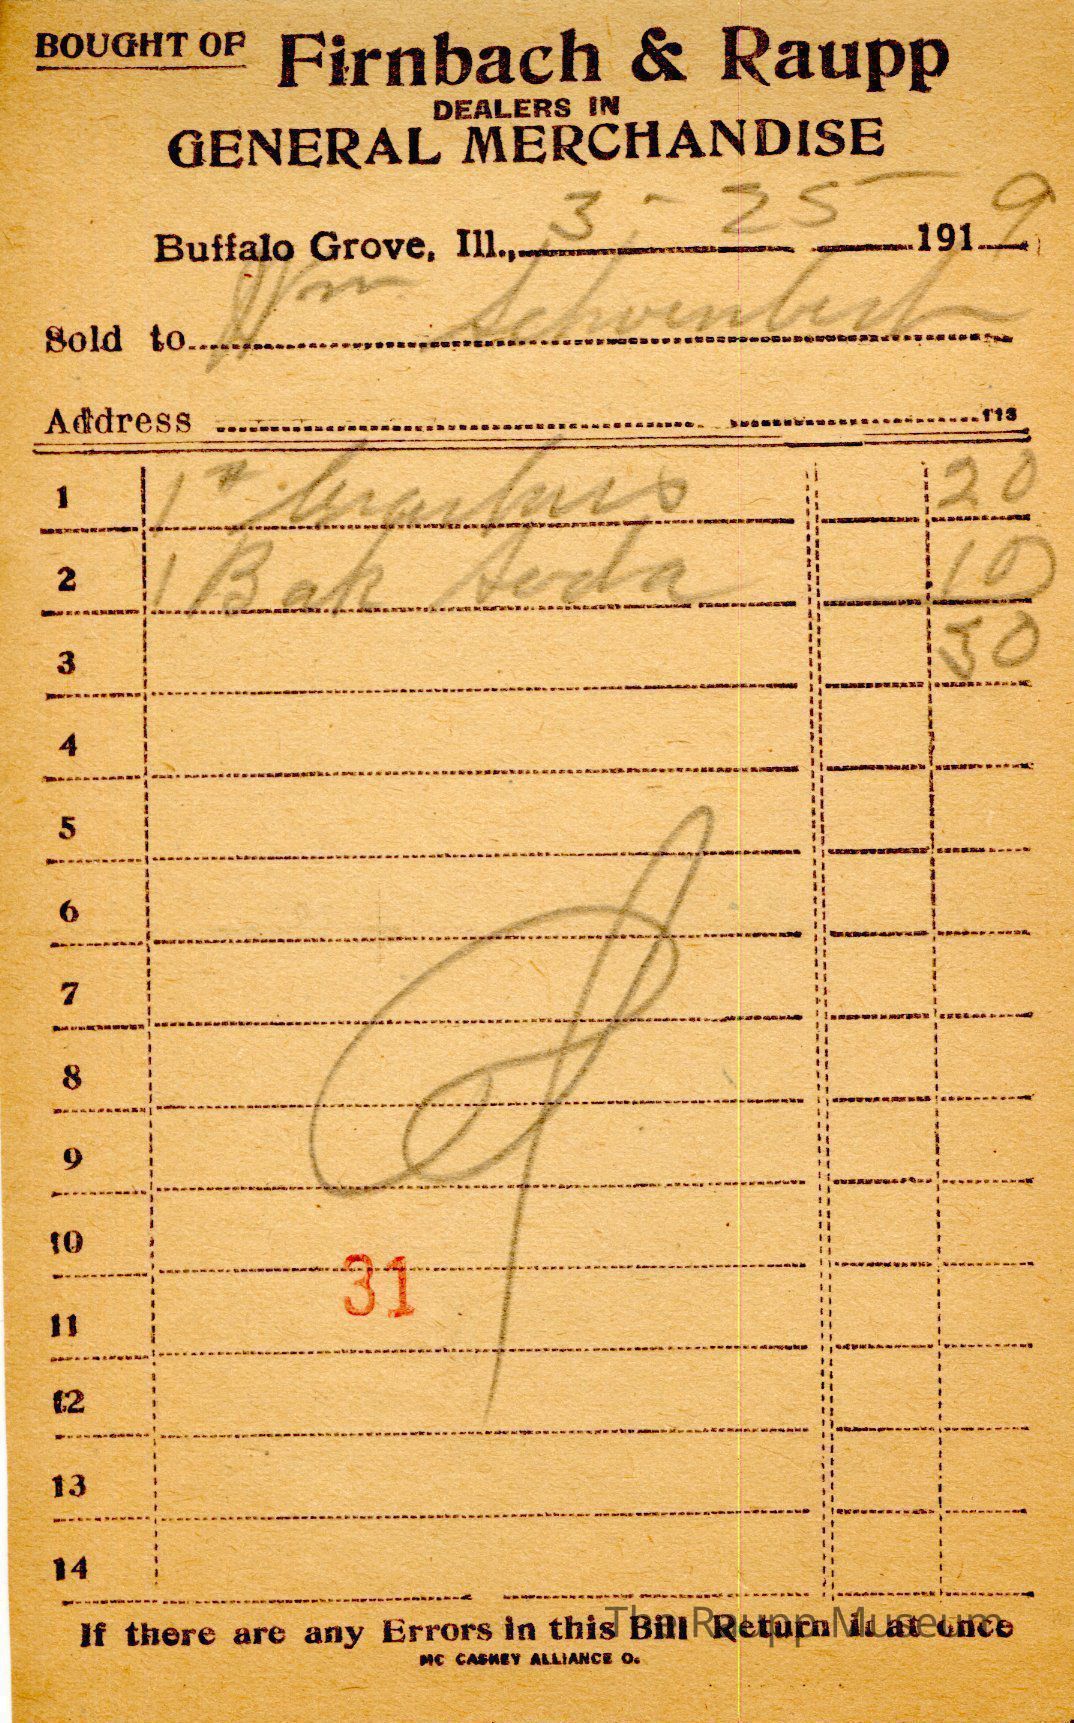 BOUGHT OF Firnbach & Raupp
DEALERS IN
GENERAL MERCHANDISE
Buffalo Grove, Ill., 3 - 25 - 1919
Sold to Wm
Address 113
1 1# 20
2 1 Bak Soda 10
3 30
4
5
6
7
8
9
10
31
11
12
13
14
If there are any Errors in this Bill Return it at once
The Raupp Museum
MC CASKEY ALLIANCE O.